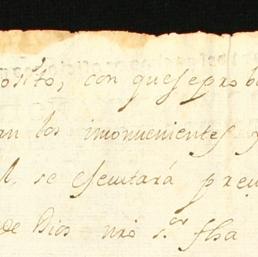 osito, con quesepro
an los inconuenientes y
M. se esecutará preu
de Dios nrõ s.or fha